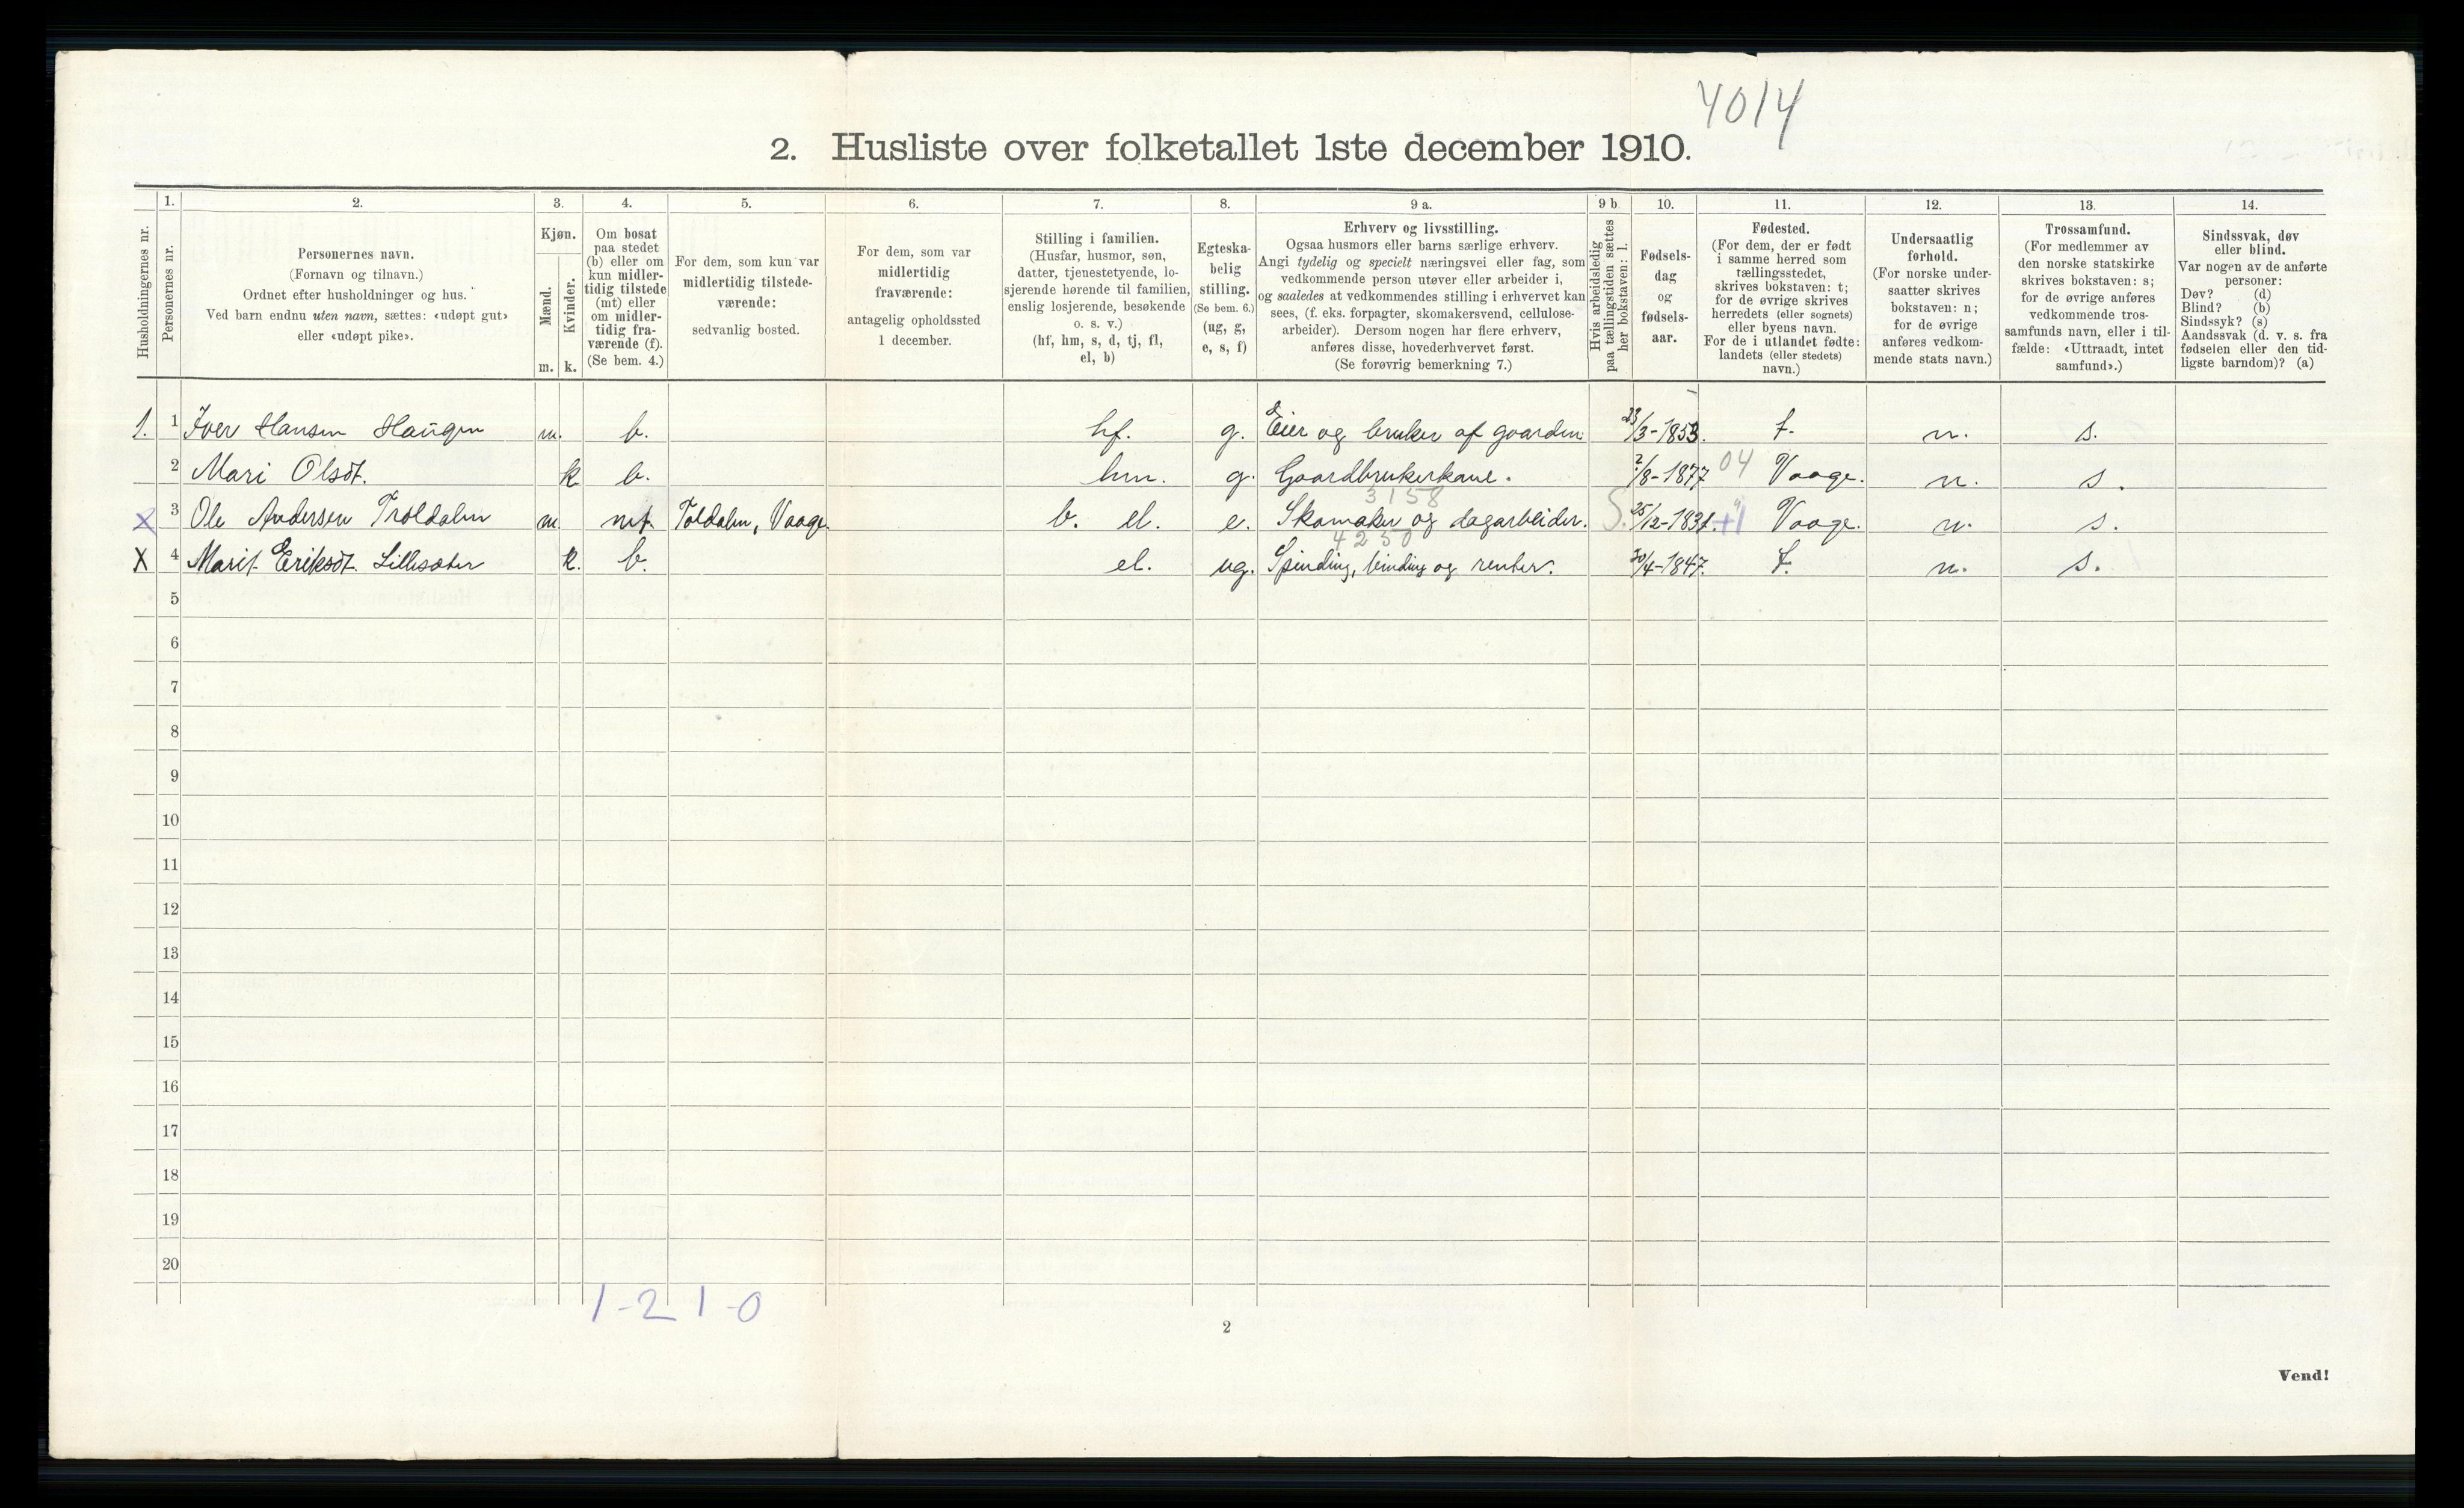 4014
2. Husliste over folketallet 1ste december 1910.
Husholdningernes nr.
1.
Personernes nr.
2.
Personernes navn.
(Fornavn og tilnavn.)
Ordnet efter husholdninger og hus.
Ved barn endnu uten navn, sættes: «udøpt gut»
eller «udøpt pike».
3.
Kjøn.
Mænd.
Kvinder.
m. k.
4.
Om bosat
paa stedet
(b) eller om
kun midler-
tidig tilstede
(mt) eller
om midler-
tidig fra-
værende (f).
(Se bem. 4.)
5.
For dem, som kun var
midlertidig tilstede-
værende:
sedvanlig bosted.
6.
For dem, som var
midlertidig
fraværende:
antagelig opholdssted
1 december.
7.
Stilling i familien.
(Husfar, husmor, søn,
datter, tjenestetyende, lo-
sjerende hørende til familien,
enslig losjerende, besøkende
o. s. v.)
(hf, hm, s, d, tj, fl,
el, b)
8.
Egteska-
belig
stilling.
(Se bem. 6.)
(ug, g,
e, s, f)
9 a.
Erhverv og livsstilling.
Ogsaa husmors eller barns særlige erhverv.
Angi tydelig og specielt næringsvei eller fag, som
vedkommende person utøver eller arbeider i,
og saaledes at vedkommendes stilling i erhvervet kan
sees, (f. eks. forpagter, skomakersvend, cellulose-
arbeider). Dersom nogen har flere erhverv,
anføres disse, hovederhvervet først.
(Se forøvrig bemerkning 7.)
9 b.
Hvis arbeidsledig
paa tællingstiden sættes
her bokstaven: l.
10.
Fødsels-
dag
og
fødsels-
aar.
11.
Fødested.
(For dem, der er født
i samme herred som
tællingsstedet,
skrives bokstaven: t;
for de øvrige skrives
herredets (eller sognets)
eller byens navn.
For de i utlandet fødte:
landets (eller stedets)
navn.)
12.
Undersaatlig
forhold.
(For norske under-
saatter skrives
bokstaven: n;
for de øvrige
anføres vedkom-
mende stats navn.)
13.
Trossamfund.
(For medlemmer av
den norske statskirke
skrives bokstaven: s;
for de øvrige anføres
vedkommende tros-
samfunds navn, eller i til-
fælde: «Uttraadt, intet
samfund».)
14.
Sindssvak, døv
eller blind.
Var nogen av de anførte
personer:
Døv? (d)
Blind? (b)
Sindssyk? (s)
Aandssvak (d. v. s. fra
fødselen eller den tid-
ligste barndom)? (a)
1. 1 Iver Hansen Haugen m. b. hf. g. Eier og bruker af gaarden 23/3-1853. t. n. s.
2 Mari Olsdt. k b. hm. g. Gaardbrukerkone. 2/8-1877 04 Vaage. n. s.
3158
X 3 Ole Andersen Troldalen m mt. Toldalen, Vaage. b. el. e. Skomaker og dagarbeider. S. 25/12-1831. Vaage. n. s.
4250
X 4 Marit Eriksdt. Lillesæter k. b. el. ug. Spinding, binding og renter. 30/4-1847. t. n. s.
5
6
7
8
9
10
11
12
13
14
15
16
17
18
19
20
1-2 1-0
2
Vend!